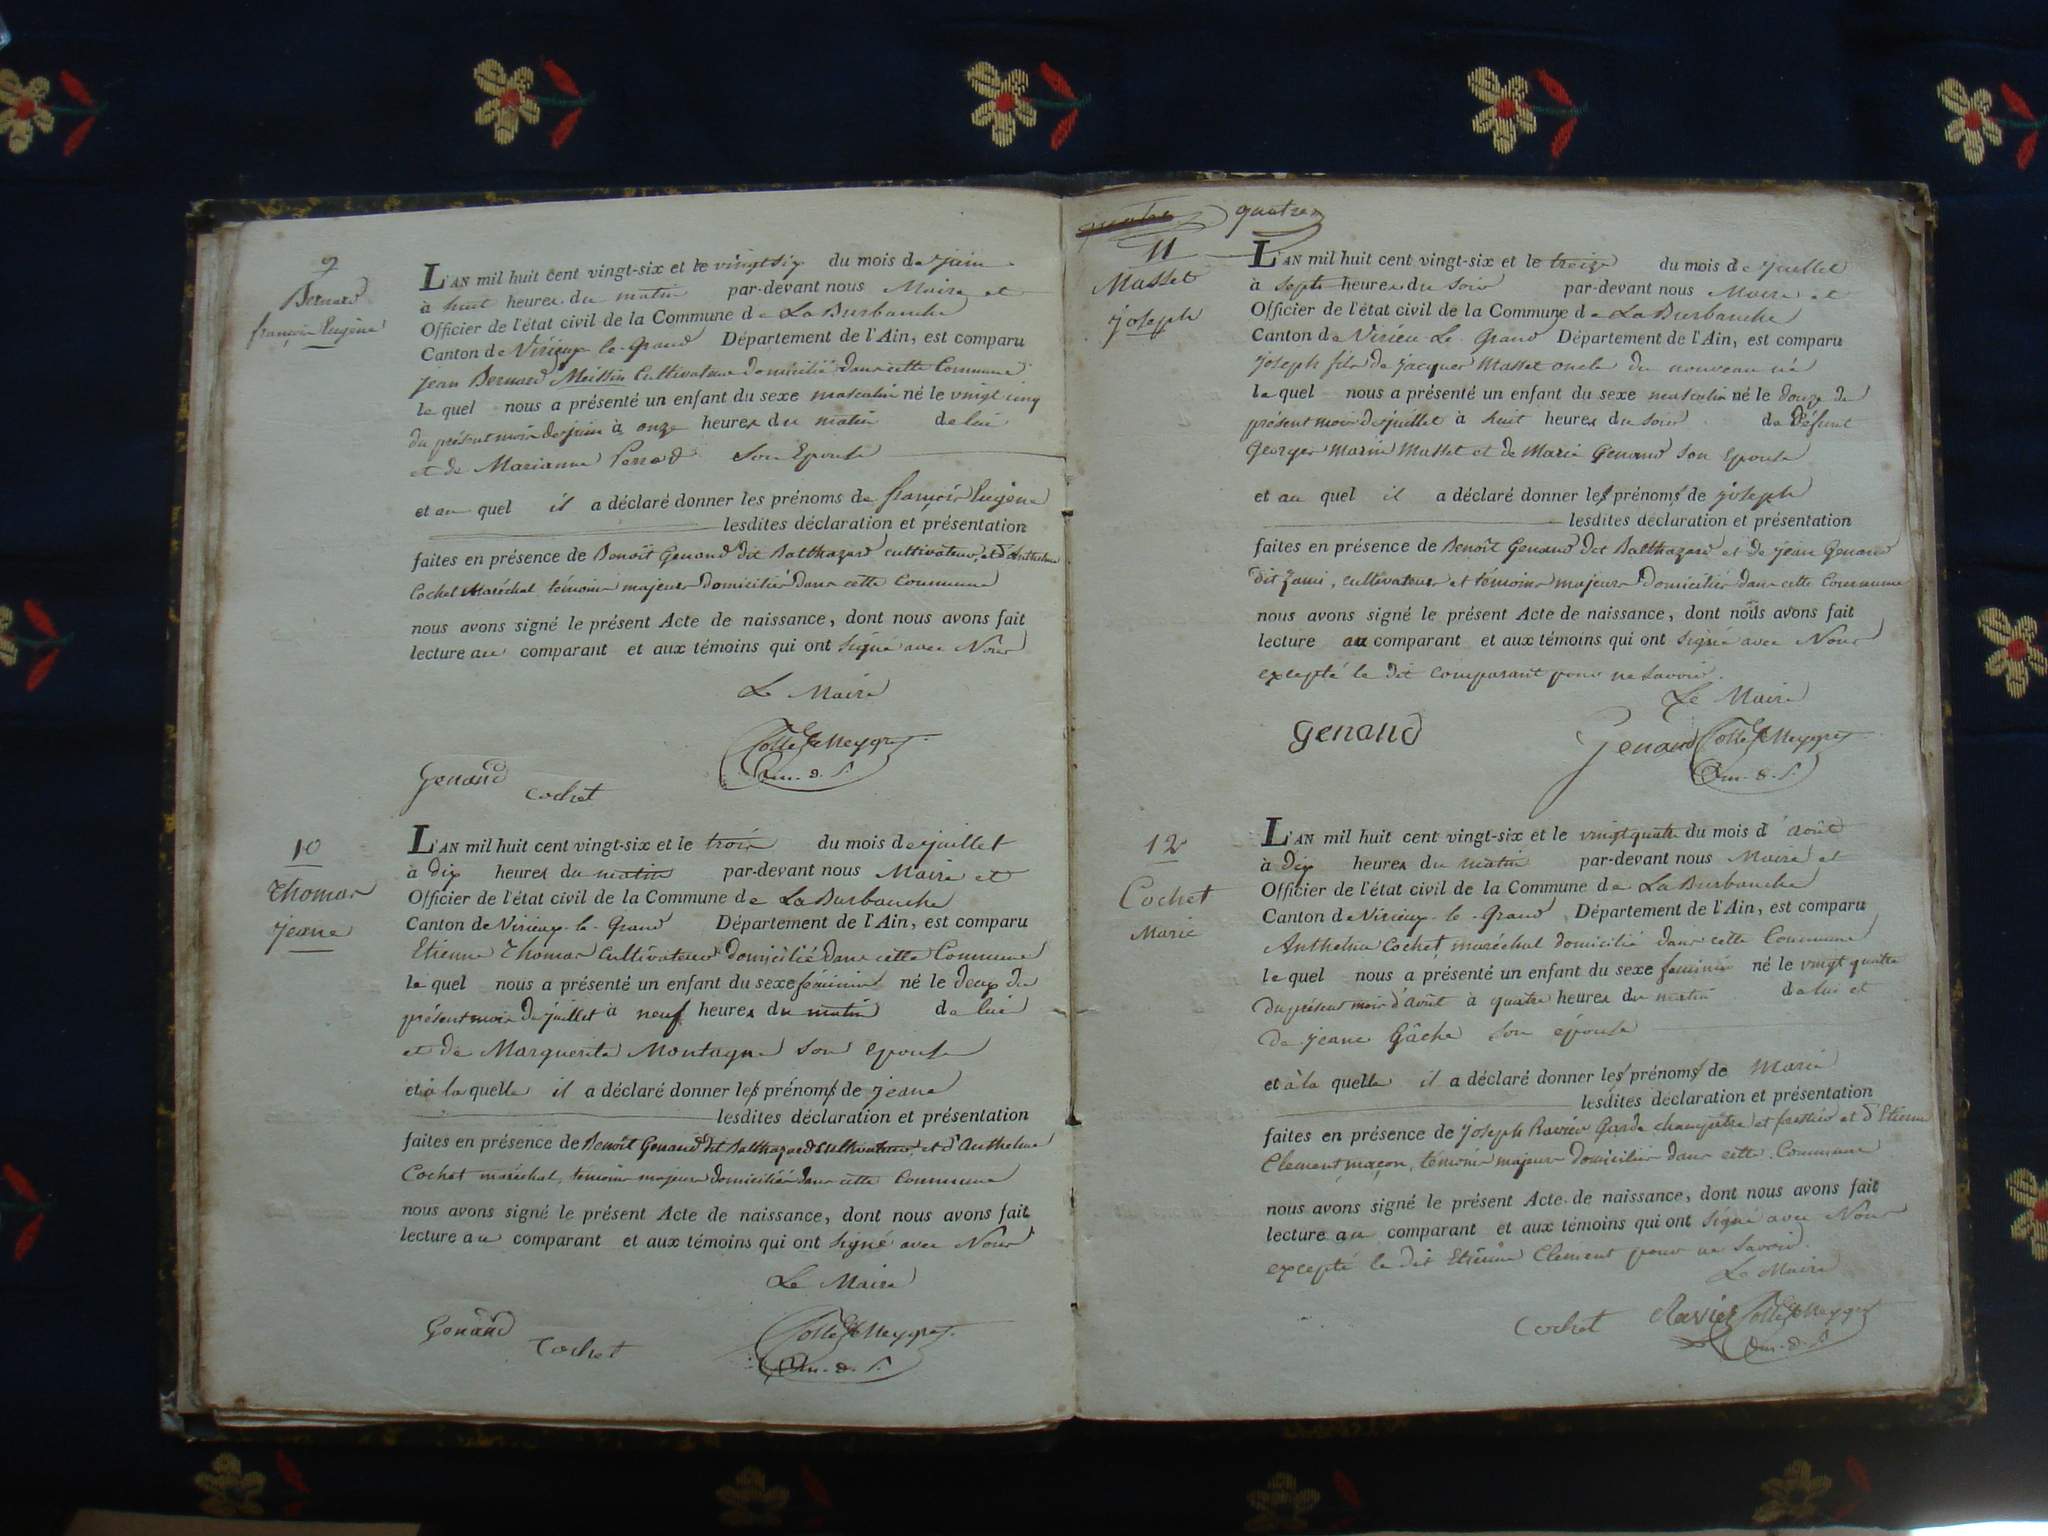 9
Bernard
françois Eugène
L'AN mil huit cent vingt-six et le vingt six du mois de juin
à huit heures du matin par-devant nous Maire et
Officier de l'état civil de la Commune de La Burbanche
Canton de Virieux-le-Grand Département de l'Ain, est comparu
jean Bernard Meissin Cultivateur domicilié dans cette Commune
le quel nous a présenté un enfant du sexe masculin né le vingt cinq
du présent mois de juin à onze heures du matin de lui
et de Marianne Perrod Son Epouse
et au quel il a déclaré donner les prénoms de françois Eugène
lesdites déclaration et présentation
faites en présence de Benoît Genand dit Balthazard cultivateur, et d'Anthelme
Cochet Maréchal témoins majeurs domiciliés dans cette Commune
nous avons signé le présent Acte de naissance, dont nous avons fait
lecture au comparant et aux témoins qui ont signé avec Nous
Le Maire
Genand
Cochet
10
Thomas
jeane
L'AN mil huit cent vingt-six et le trois du mois de juillet
à dix heures du matin par-devant nous Maire et
Officier de l'état civil de la Commune de La Burbanche
Canton de Virieux-le-Grand Département de l'Ain, est comparu
Etienne Thomas Cultivateur domicilié dans cette Commune
le quel nous a présenté un enfant du sexe féminin né le deux du
présent mois de juillet à neuf heures du matin de lui
et de Marguerite Montagne son Epouse
et à la quelle il a déclaré donner les prénoms de jeane
lesdites déclaration et présentation
faites en présence de Benoît Genand dit Balthazard cultivateur, et d'Anthelme
Cochet maréchal, témoins majeurs domiciliés dans cette Commune
nous avons signé le présent Acte de naissance, dont nous avons fait
lecture au comparant et aux témoins qui ont signé avec Nous
Le Maire
Genand
Cochet
quatre quatre
11
Masset
joseph
L'AN mil huit cent vingt-six et le treize du mois de juillet
à sept heures du soir par-devant nous Maire et
Officier de l'état civil de la Commune de La Burbanche
Canton de Virieu-Le-Grand Département de l'Ain, est comparu
joseph fils de jacques Masset oncle du nouveau né
le quel nous a présenté un enfant du sexe masculin né le douze du
présent mois de juillet à huit heures du soir de défunt
Georges Marin Masset et de Marie Genand son Epouse
et au quel il a déclaré donner les prénoms de joseph
lesdites déclaration et présentation
faites en présence de Benoît Genand dit Balthazard et de jean Genand
dit cultivateurs et témoins majeurs domiciliés dans cette Commune
nous avons signé le présent Acte de naissance, dont nous avons fait
lecture au comparant et aux témoins qui ont signé avec Nous
excepté le dit comparant pour ne savoir.
Le Maire
Genand
Genand
12
Cochet
Marie
L'AN mil huit cent vingt-six et le vingt quatre du mois d'août
à dix heures du matin par-devant nous Maire et
Officier de l'état civil de la Commune de La Burbanche
Canton de Virieux-le-Grand Département de l'Ain, est comparu
Anthelme Cochet, maréchal domicilié dans cette Commune
le quel nous a présenté un enfant du sexe féminin né le vingt quatre
du présent mois d'août à quatre heures du matin de lui et
de jeane Gâche son épouse
et à la quelle il a déclaré donner les prénoms de Marie
lesdites déclaration et présentation
faites en présence de joseph Ravier Garde champêtre et forestier et d'Etienne
Clement maçon, témoins majeurs domiciliés dans cette Commune
nous avons signé le présent Acte de naissance, dont nous avons fait
lecture au comparant et aux témoins qui ont signé avec Nous
excepté le dit Etienne Clement pour ne savoir.
Le Maire
Cochet
Ravier